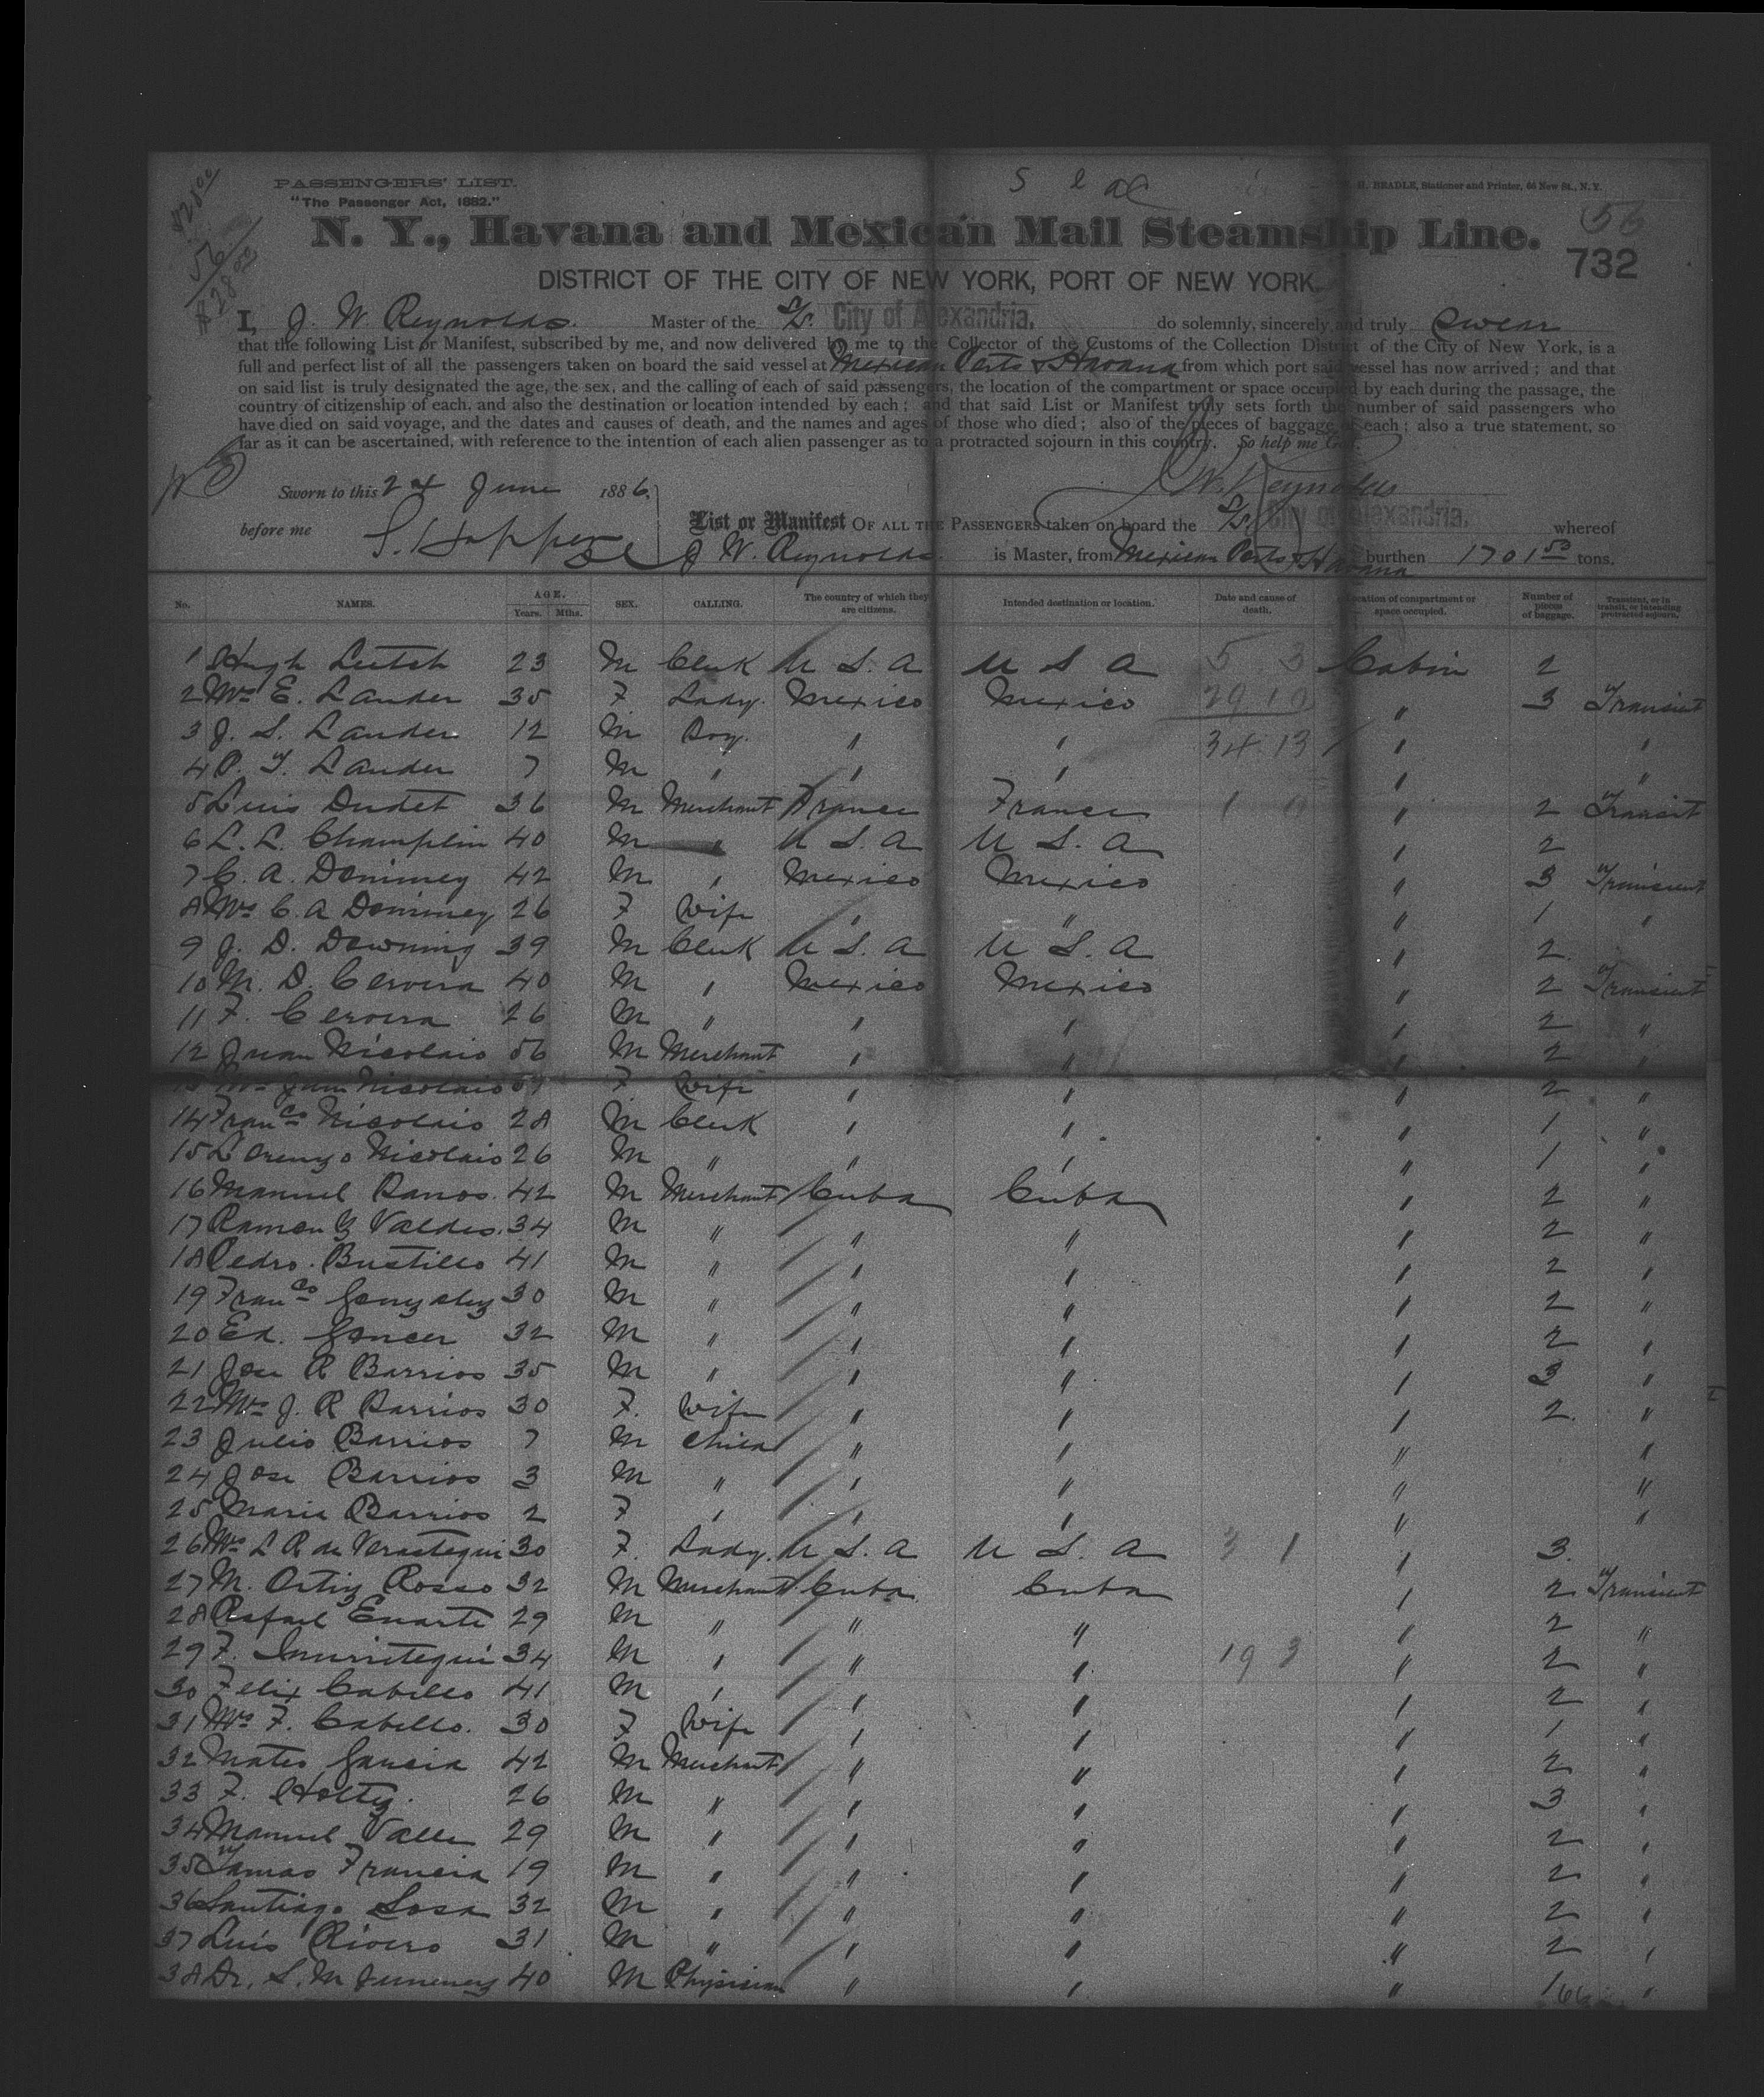 PASSENGERS' LIST.
"The Passenger Act, 1882."
H. BEADLE, Stationer and Printer, 66 New St., N. Y.
N. Y., Havana and Mexican Mail Steamship Line.
56
732
DISTRICT OF THE CITY OF NEW YORK, PORT OF NEW YORK.
I, J. W. Reynolds Master of the S/S. City of Alexandria, do solemnly, sincerely and truly Swear
that the following List or Manifest, subscribed by me, and now delivered by me to the Collector of the Customs of the Collection District of the City of New York, is a
full and perfect list of all the passengers taken on board the said vessel at Mexican Ports & Havana from which port said vessel has now arrived; and that
on said list is truly designated the age, the sex, and the calling of each of said passengers, the location of the compartment or space occupied by each during the passage, the
country of citizenship of each, and also the destination or location intended by each; and that said List or Manifest truly sets forth the number of said passengers who
have died on said voyage, and the dates and causes of death, and the names and ages of those who died; also of the pieces of baggage of each; also a true statement, so
far as it can be ascertained, with reference to the intention of each alien passenger as to a protracted sojourn in this country. So help me God.
J W. Reynolds
Sworn to this 2d June 1886.
before me
List or Manifest OF ALL THE PASSENGERS taken on board the S/S. City of Alexandria, whereof
J W. Reynolds is Master, from Mexican Ports & Havana burthen 1701 50 tons.
No. NAMES. AGE. Years. Mths. SEX. CALLING. The country of which they are citizens. Intended destination or location. Date and cause of death. Location of compartment or space occupied. Number of pieces of baggage. Transient, or in transit, or intending protracted sojourn.
1 Hugh Leitch 23 M Clerk U S. A U S A 5 3 Cabin 2
2 Mrs E. Lander 35 F. Lady. Mexico Mexico 29 10 " 3 Transient
3 J. S. Lander 12 M Boy. " " 34 13 " "
4 P. T. Lander 7 M " " " " "
5 Luis Dudet 36 M Merchant France France " 2 Transit
6 L. L. Champlin 40 M " U S. A U S. A " 2
7 C. A. Dominey 42 M " Mexico Mexico " 3 Transient
8 Mrs C. A Dominey 26 F Wife " " " 1 "
9 J. D. Downing 39 M Clerk U S. A U S. A " 2
10 M. D. Cervera 40 M " Mexico Mexico " 2 Transient
11 F. Cervera 26 M " " " " 2 "
12 Juan Nicolais 56 M Merchant " " " 2 "
13 Mrs Juan Nicolais F. Wife " " " 2 "
14 Franco Nicolais 28 M Clerk " " " 1 "
15 Lorenzo Nicolais 26 M " " " " 1 "
16 Manuel Barros. 42 M Merchant Cuba Cuba " 2 "
17 Ramon G Valdes. 34 M " " " " 2 "
18 Pedro. Bustillo 41 M " " " " 2 "
19 Franco Gonzalez 30 M " " " " 2 "
20 Ed. 32 M " " " " 2 "
21 Jose R Barrios 35 M " " " " 3 "
22 Mrs J. R Barrios 30 F. Wife " " " 2. "
23 Julio Barrios 7 M Child " " " "
24 Jose Barrios 3 M " " " " "
25 Maria Barrios 2 F " " " " "
26 Mrs L R de Verastegui 30 F. Lady. U S. A U S. A 3 1 " 3.
27 M. Ortiz Rosso 32 M Merchant Cuba Cuba " 2 Transient
28 Rafael 29 M " " " " 2 "
29 F. 34 M " " " 19 3 " 2 "
30 Felix Cabello 41 M " " " " 2 "
31 Mrs F. Cabello. 30 F Wife " " " 1 "
32 Mateo Garcia 42 M Merchant " " " 2 "
33 F. Holtz. 26 M " " " " 3 "
34 Manuel Valle 29 M " " " " 2 "
35 Tomas Francia 19 M " " " " 2 "
36 Santiago Sosa 32 M " " " " 2 "
37 Luis Rivero 31 M " " " " 2 "
38 Dr. S. M Jimenez 40 M Physician " " " 1 "
66